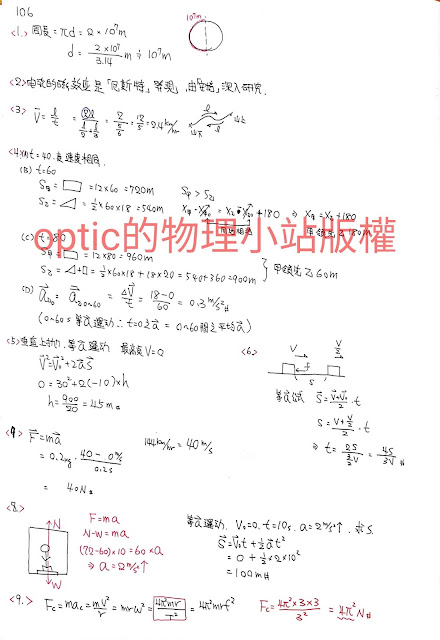 106
10⁷m
<1.> 圓周長 = πd = 2×10⁷m
d = 2×10⁷/3.14 m ≑ 10⁷m
<2> 電流的磁效應是「厄斯特」發現, 由安培, 深入研究.
<3> V = l/t = 2l/(l/2+l/3) = 2/(5/6) = 12/5 = 2.4 km/hr
<4> (A) t=40. 表速度相同.
(B) t=60
S甲 = ▭ = 12×60 = 720m
S甲 > S乙
S乙 = = ½×60×18 = 540m
+180 ⇒ X甲 = X乙+180
optic的物理小站版權
(C) t=80
S甲 = ▭ = 12×80 = 960m
S乙 = △+▯ = ½×60×18 + 18×20 = 540+360 = 900m
甲領先乙60m
(D) a乙0 = a乙0~60 = ΔV/t = 18-0/60 = 0.3 m/s²
(0~60s 等加速運動 ∴ t=0之a = 0~60間之平均a)
<5> 鉛直上拋. 等加速運動 最高度 V=0
V²=V₀²+2aS
0 = 30²+2(-10)×h
h = 900/20 = 45m
<6.>
V
V/2
f
S
等加公式 S = V+V₀/2 · t
S = V+V/2 /2 · t
⇒ t = 2S/(3/2 V) = 4S/3V
F = ma
144 km/hr = 40 m/s
= 0.2kg · 40-0 m/s / 0.2s
= 40N
<8.>
N
W
F=ma
N-W=ma
(72-60)×10=60×a
⇒ a=2m/s²↑
等加運動. V₀=0. t=10s. a=2m/s²↑. 求S.
S = V₀t + ½at²
= 0 + ½×2×10²
= 100m
<9.> Fc = mac = mV²/r = mrω² = 4π²mr/T² = 4π²mrf²
Fc = 4π²×3×3/3² = 4π² N